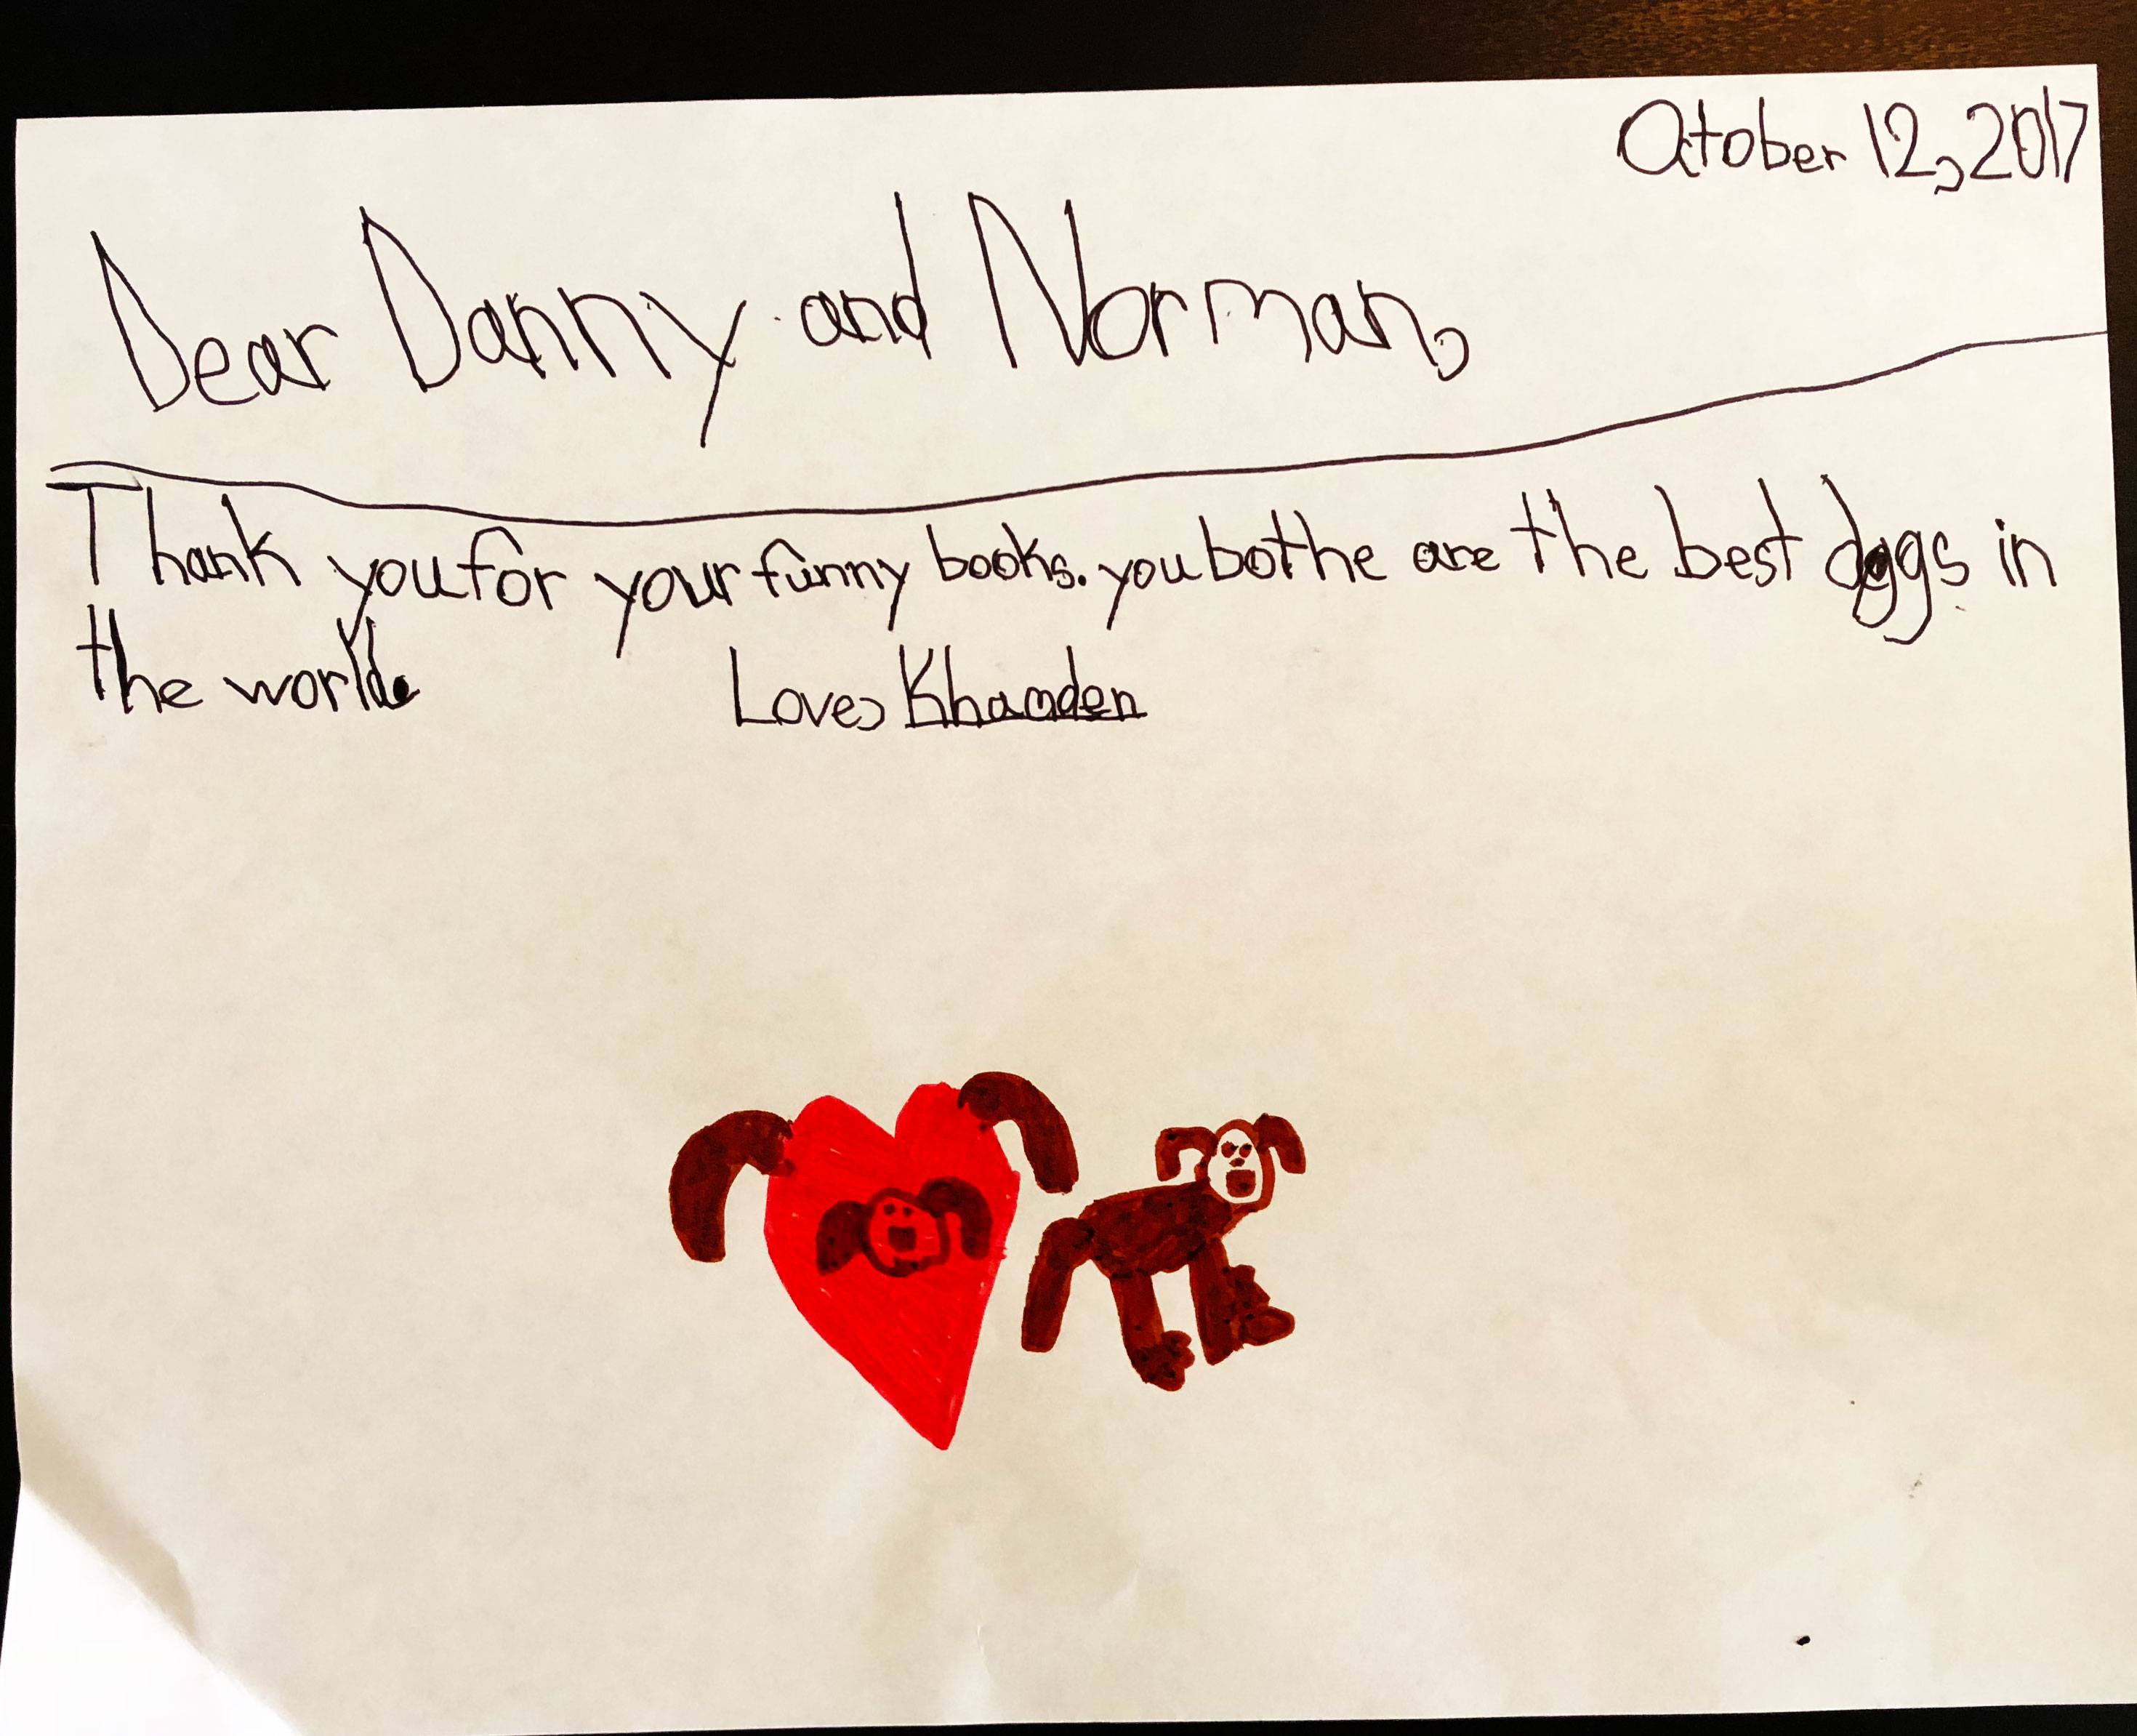 October 12, 2017
Dear Danny and Norman,
Thank you for your funny books. you bothe are the best dogs in
the world.
Love, Khamden